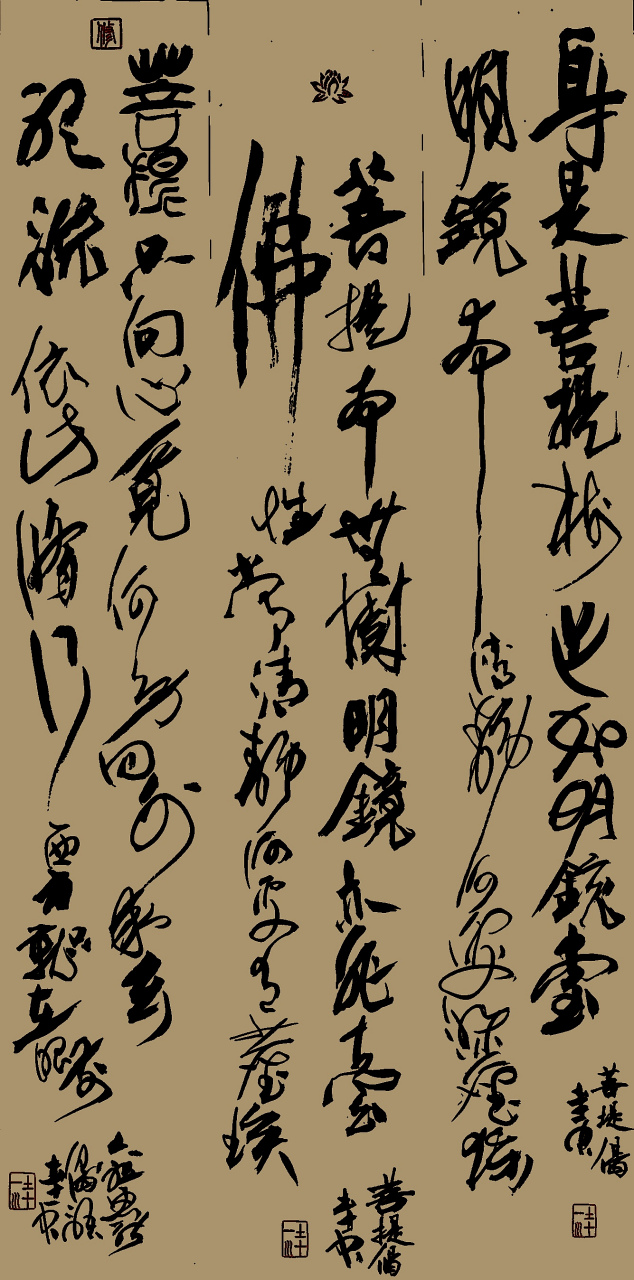 身是菩提樹心如明鏡臺
明鏡本清靜何處染塵埃
菩提偈
菩提本無樹明鏡亦非臺
佛性常清靜何處有塵埃
菩提偈
菩提只向心覓何勞向外求玄
聽說依此修行西方在眼前